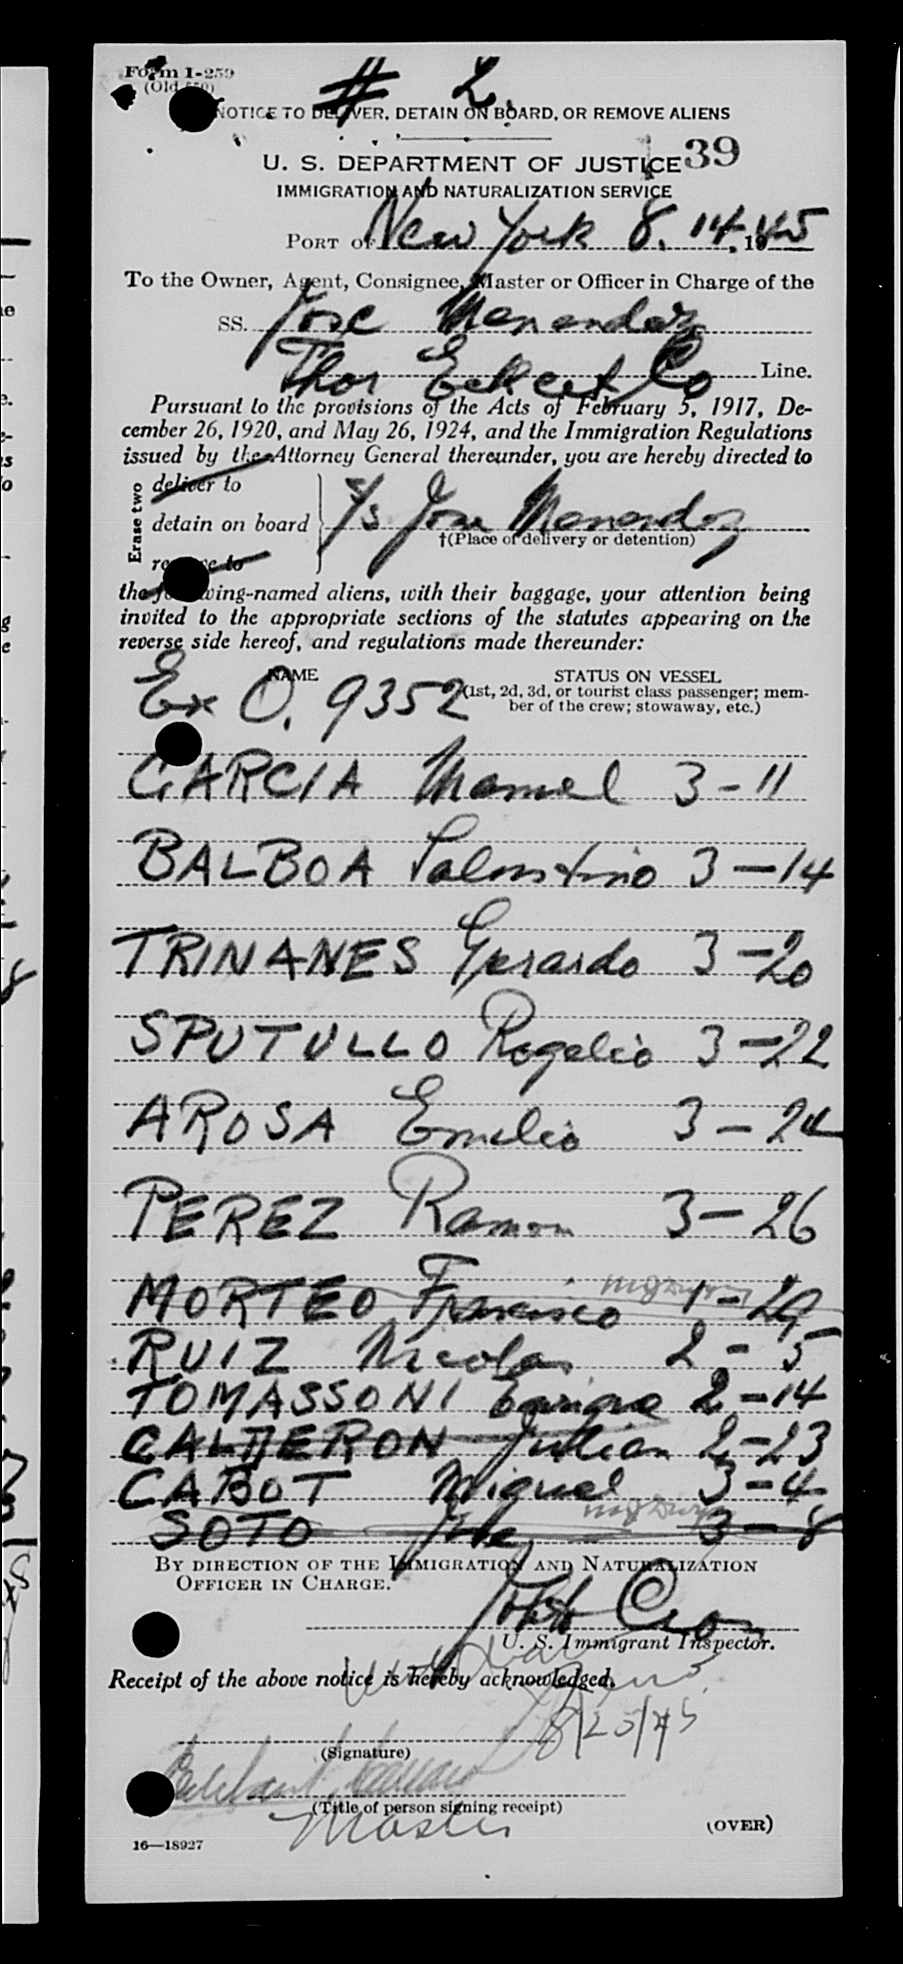 Form I-259
(Old 550)
# 2.
NOTICE TO DELIVER, DETAIN ON BOARD, OR REMOVE ALIENS
U. S. DEPARTMENT OF JUSTICE 39
IMMIGRATION AND NATURALIZATION SERVICE
PORT OF New York 8. 14, 1945
To the Owner, Agent, Consignee, Master or Officer in Charge of the
SS. Jose Menendez
Thor Eckert Co Line.
Pursuant to the provisions of the Acts of February 5, 1917, De-
cember 26, 1920, and May 26, 1924, and the Immigration Regulations
issued by the Attorney General thereunder, you are hereby directed to
Erase two
deliver to
detain on board S/S Jose Menendez
†(Place of delivery or detention)
remove to
the following-named aliens, with their baggage, your attention being
invited to the appropriate sections of the statutes appearing on the
reverse side hereof, and regulations made thereunder:
NAME STATUS ON VESSEL
Ex O. 9352 (1st, 2d, 3d, or tourist class passenger; mem-
ber of the crew; stowaway, etc.)
GARCIA Manuel 3-11
BALBOA 3-14
TRINANES Gerardo 3-20
SPUTULLO Rogelio 3-22
AROSA Emilio 3-24
PEREZ Ramon 3-26
MORTEO Francisco 1-29
RUIZ Nicolas 2-5
TOMASSONI 2-14
CALDERON Julian 2-23
CABOT Miguel 3-4
SOTO 3-8
BY DIRECTION OF THE IMMIGRATION AND NATURALIZATION
OFFICER IN CHARGE.
U. S. Immigrant Inspector.
Receipt of the above notice is hereby acknowledged.
8/25/45
(Signature)
(Title of person signing receipt)
Master
(OVER)
16—18927